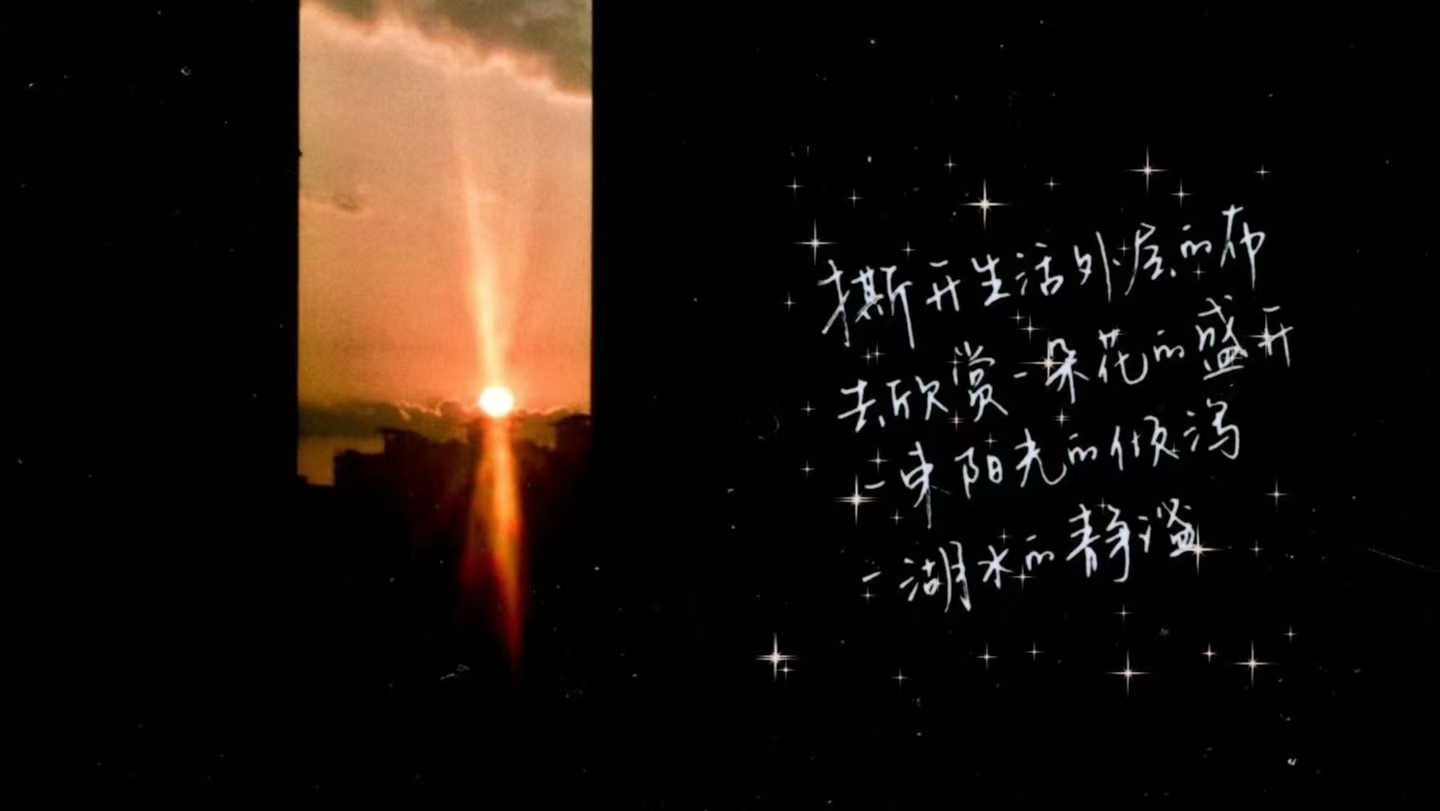 撕开生活外层的布
去欣赏一朵花的盛开
一束阳光的倾泻
一湖水的静谧